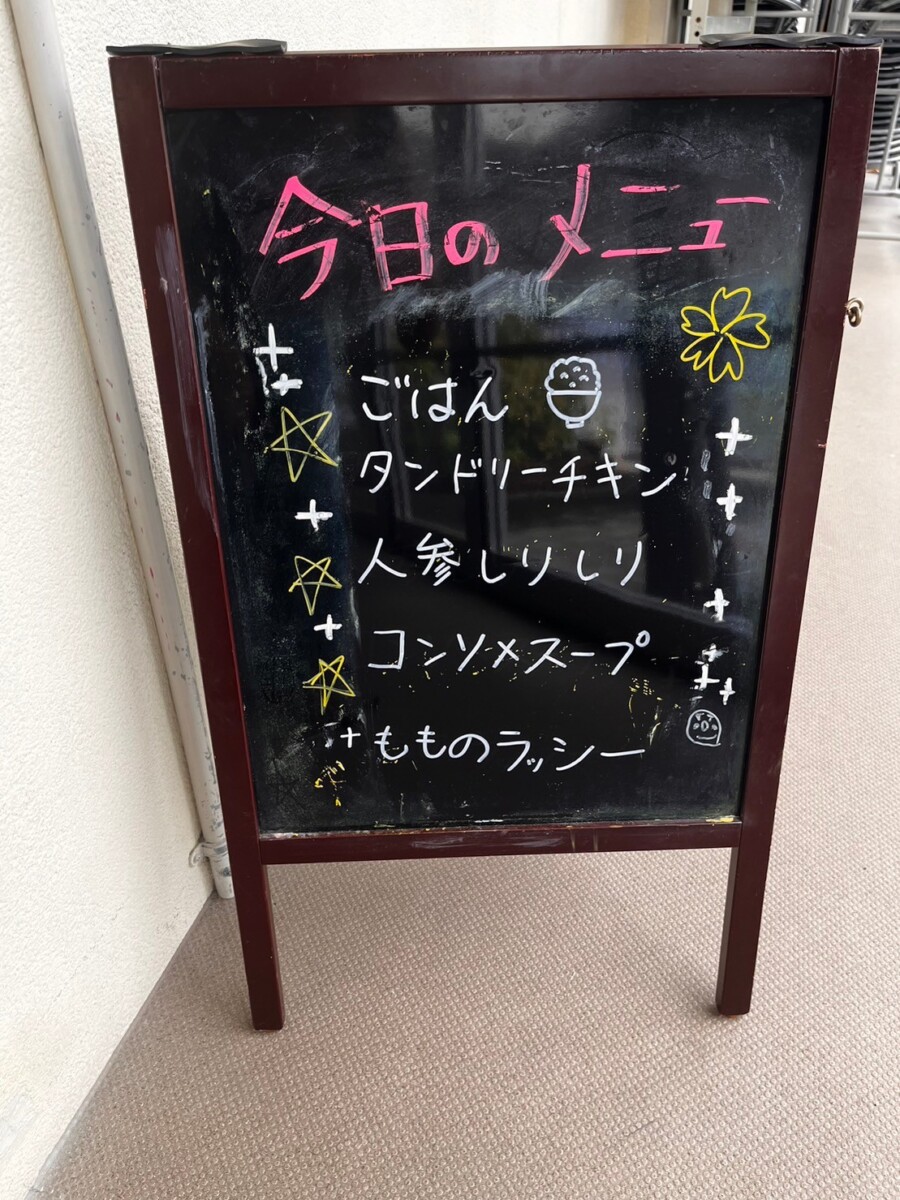 今日のメニュー
ごはん
タンドリーチキン
人参しりしり
コンソメスープ
もものラッシー